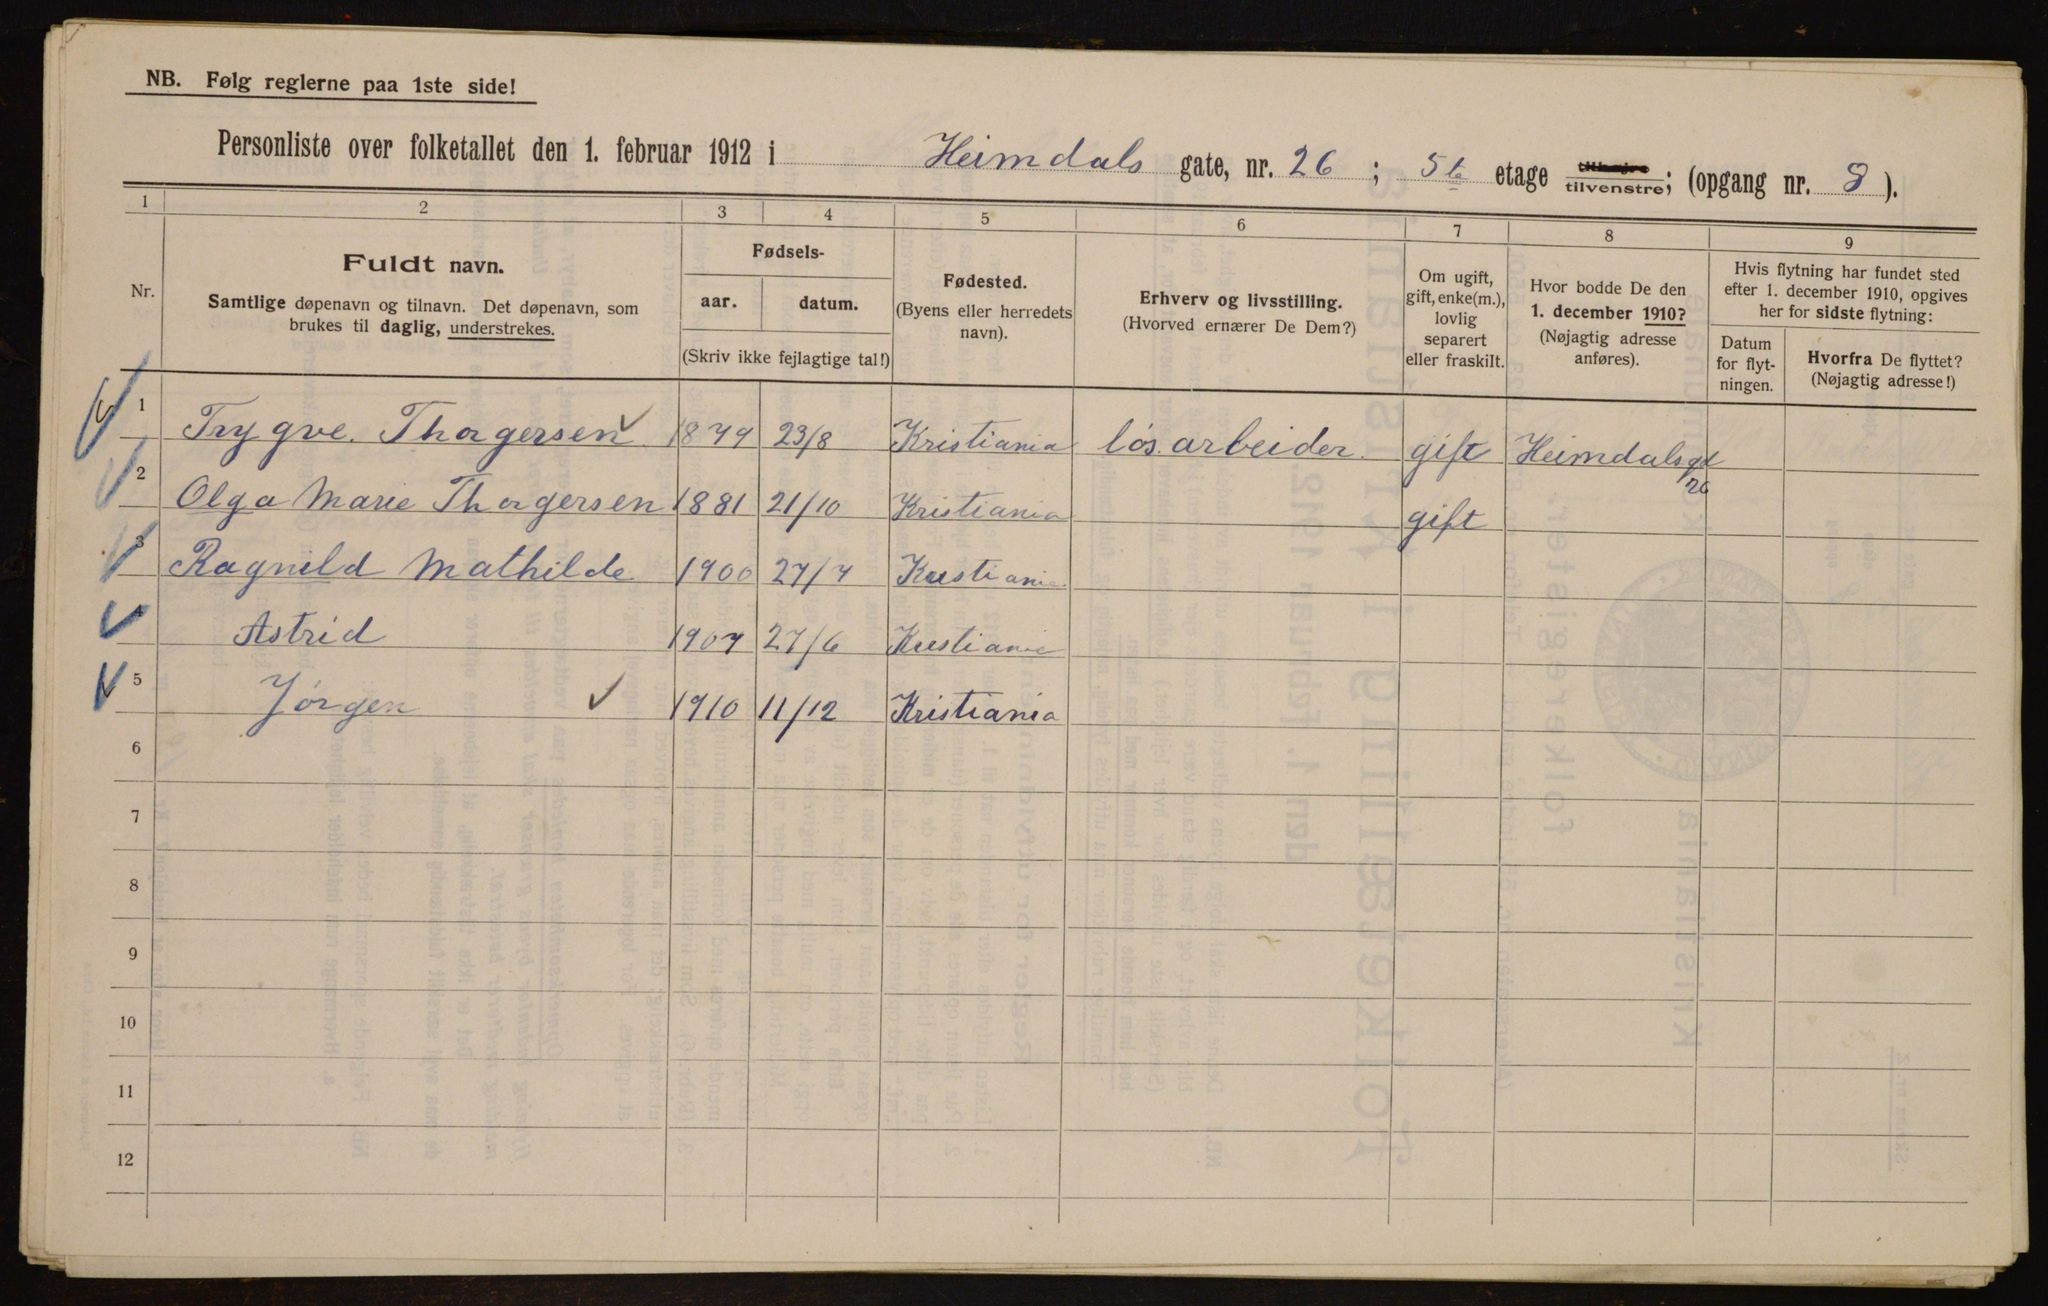 NB. Følg reglerne paa 1ste side!
Personliste over folketallet den 1. februar 1912 i Heimdals gate, nr. 26 ; 5te etage tilhøjre tilvenstre; (opgang nr. 8 ).
1 2 3 4 5 6 7 8 9
Nr.
Fuldt navn.
Samtlige døpenavn og tilnavn. Det døpenavn, som
brukes til daglig, understrekes.
Fødsels-
aar. datum.
(Skriv ikke fejlagtige tal!)
Fødested.
(Byens eller herredets
navn).
Erhverv og livsstilling.
(Hvorved ernærer De Dem?)
Om ugift,
gift, enke(m.),
lovlig
separert
eller fraskilt.
Hvor bodde De den
1. december 1910?
(Nøjagtig adresse
anføres).
Hvis flytning har fundet sted
efter 1. december 1910, opgives
her for sidste flytning:
Datum
for flyt-
ningen.
Hvorfra De flyttet?
(Nøjagtig adresse!)
1 Trygve. Thorgersen 1879 23/8 Kristiania løs.arbeider. gift Heimdalsgd
26
2 Olga Marie Thorgersen 1881 21/10 Kristiania gift
3 Ragnild Mathilde 1900 27/7 Kristiania
4 Astrid 1907 27/6 Kristiania
5 Jørgen 1910 11/12 Kristiania
6
7
8
9
10
11
12